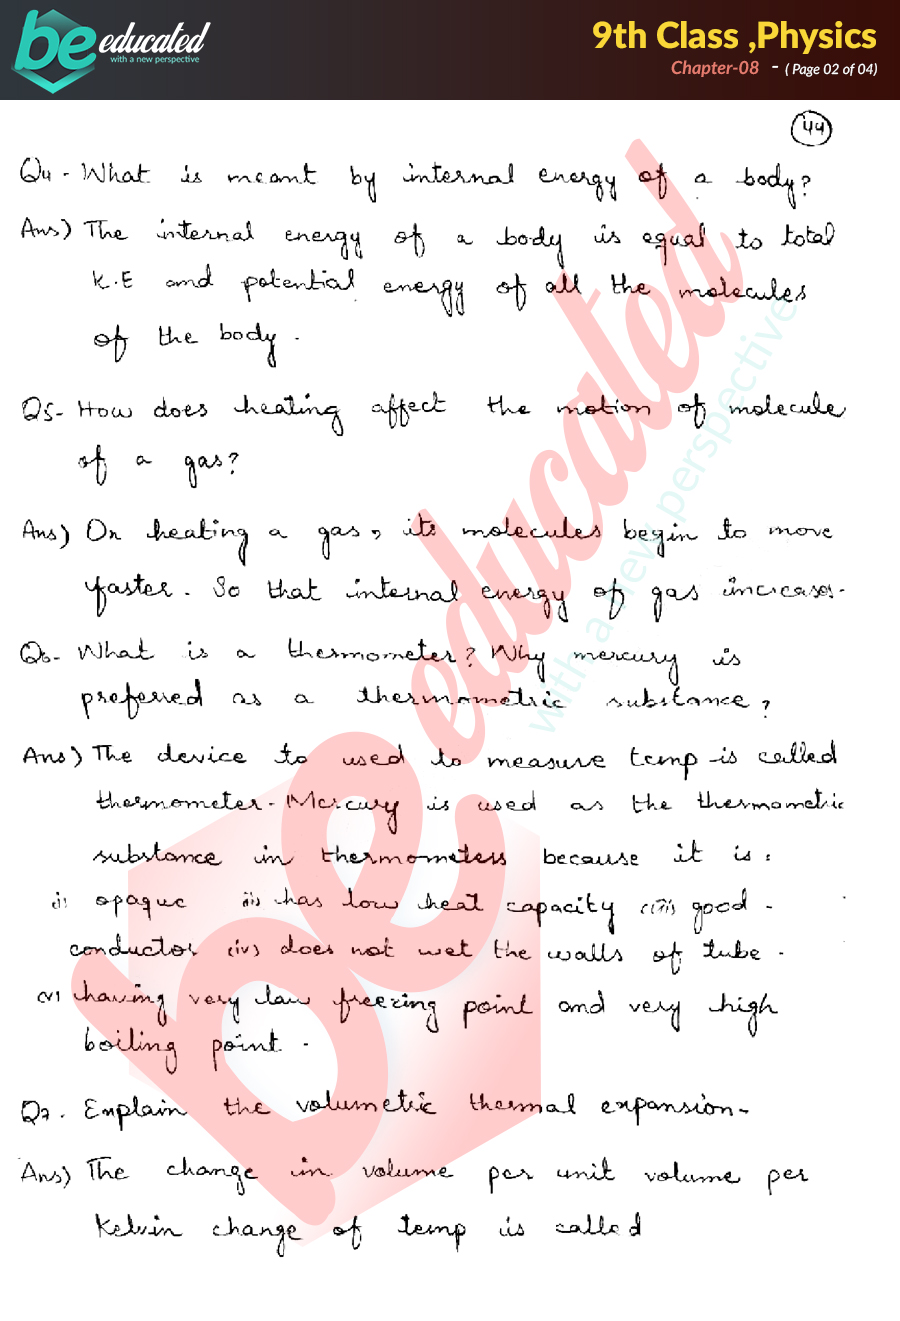 be educated
with a new perspective
9th Class ,Physics
Chapter-08 - ( Page 02 of 04)
44
Q4 - What is meant by internal energy of a body?
Ans) The internal energy of a body is equal to total
K.E and potential energy of all the molecules
of the body .
Q5- How does heating affect the motion of molecule
of a gas?
Ans) On heating a gas, its molecules begin to move
faster . So that internal energy of gas increases.
Q6- What is a thermometer? Why mercury is
preferred as a thermometric substance?
Ans) The device to used to measure temp is called
thermometer. Mercury is used as the thermometric
substance in thermometers because it is :
i) opaque ii) has low heat capacity (iii) good
conductor (iv) does not wet the walls of tube .
(v) having very low freezing point and very high
boiling point .
Q7. Explain the volumetric thermal expansion.
Ans) The change in volume per unit volume per
Kelvin change of temp is called
be educated
with a new perspective